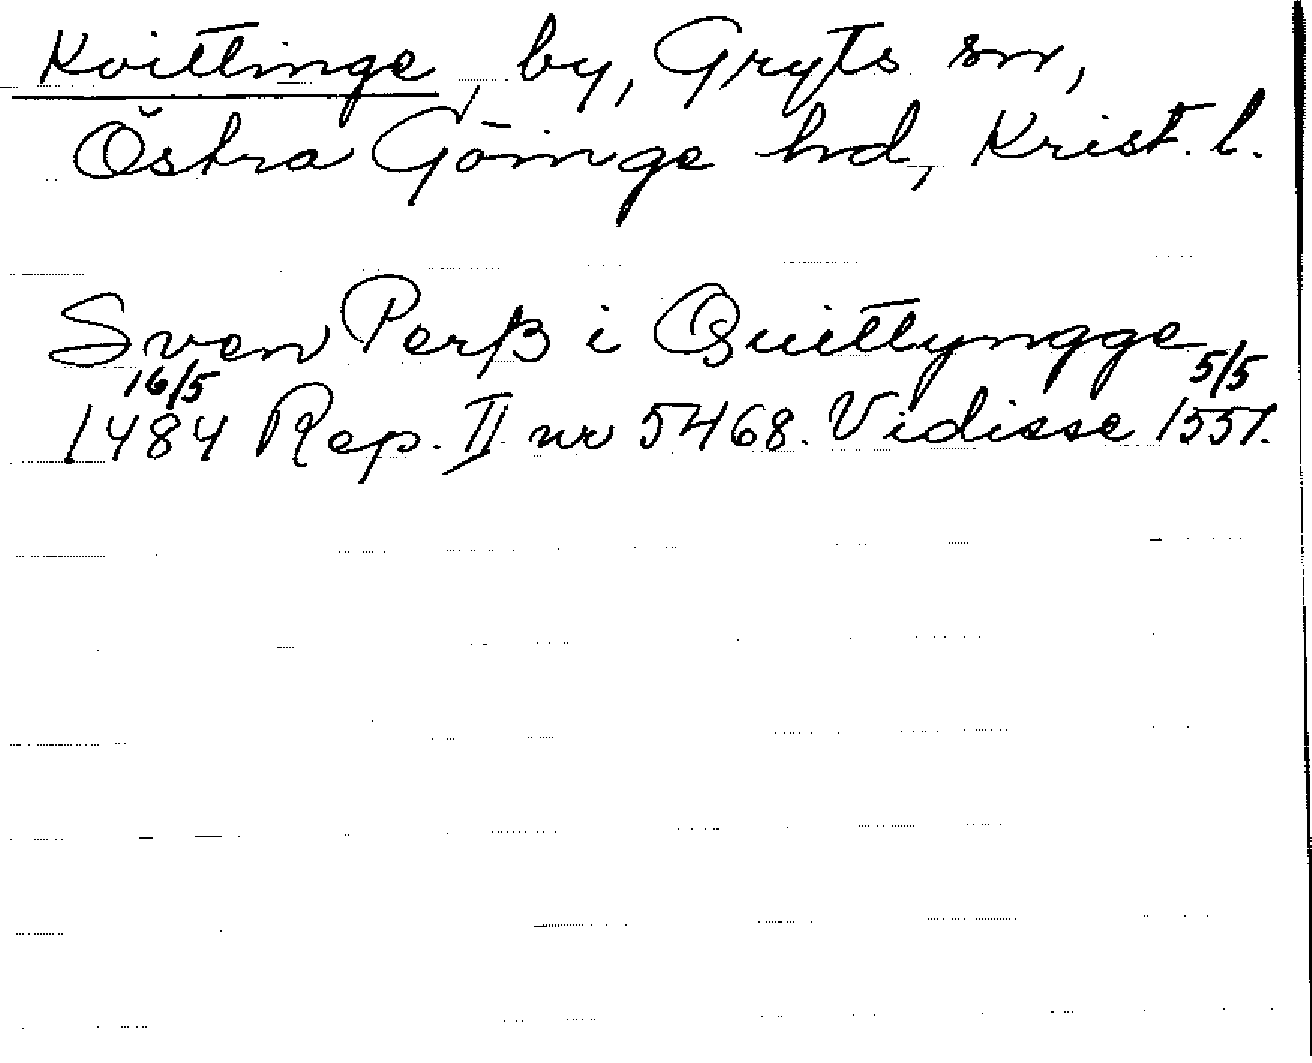 Kvittinge, by, Gryts sn,
Östra Göinge hd, Krist. l.
Sven Perß i Quittyngge
16/5 5/5
1484 Rep. II nr 5468. Vidisse 1551.